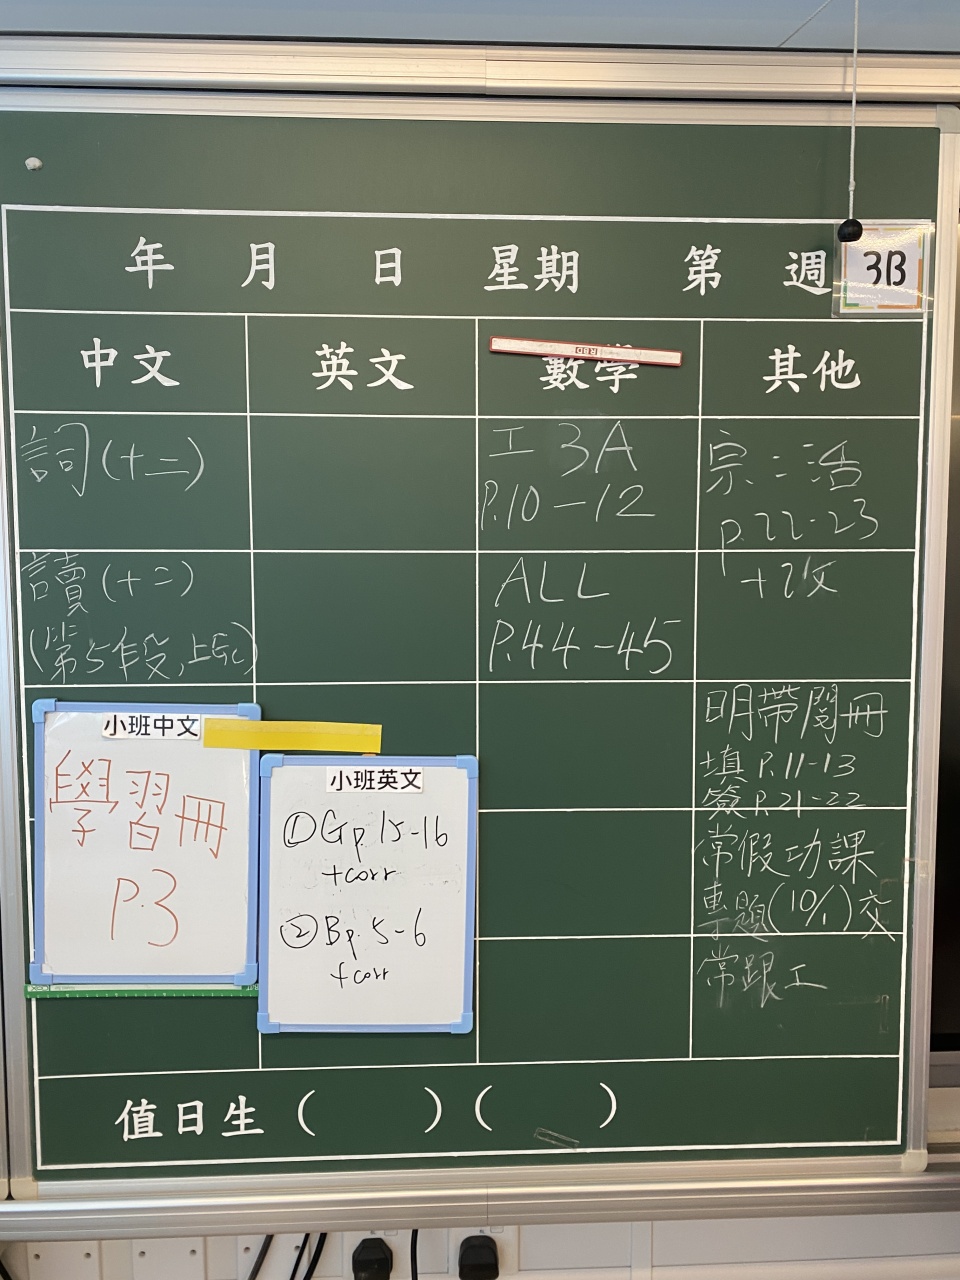 年 月 日 星期 第 週
3B
中文 英文 數學 其他
詞(十二)
讀(十二)
(第5年段,上GC)
工 3A
P.10-12
ALL
P.44-45
宗:活
p.22-23
+改
明帶閱冊
填 P.11-13
簽 P.21-22
常假功課
專題(10/1)交
常跟工
小班中文
學習冊
P.3
小班英文
①Gp.15-16
+corr
②Bp.5-6
+corr
值日生 ( ) ( )